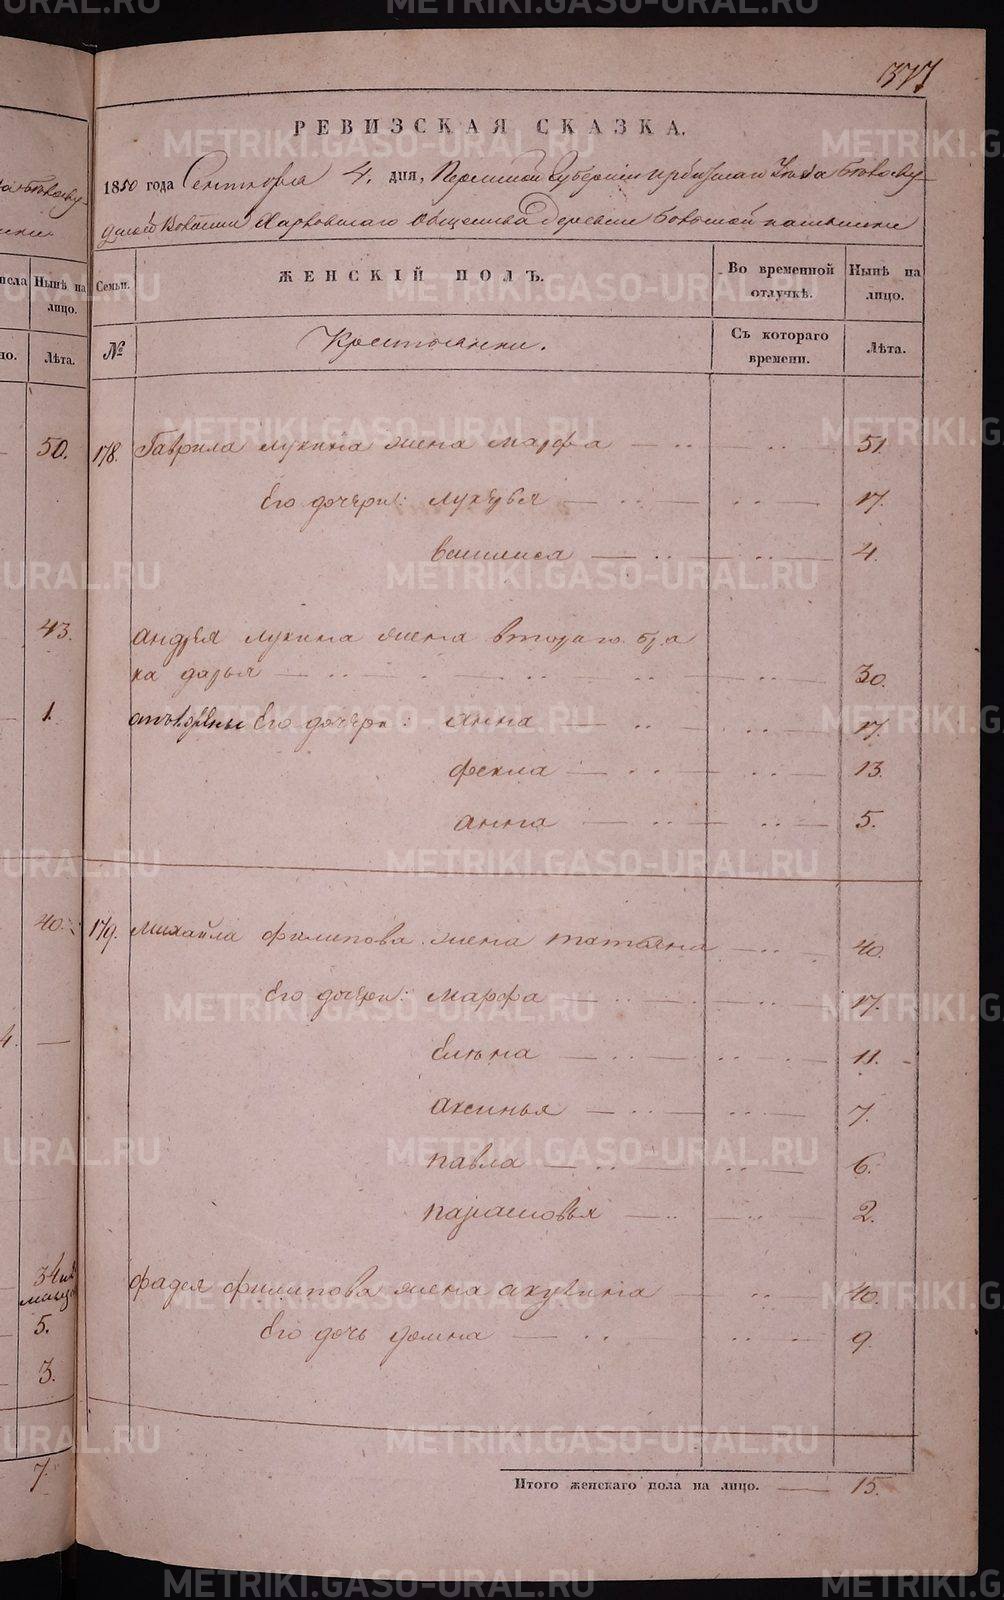 377
РЕВИЗСКАЯ СКАЗКА.
1850 года Сентября 4. дня, Пермской Губернии Ирбитскаго Уезда Белослу-
дской Волости Харловскаго общества Деревни
Семьи. ЖЕНСКІЙ ПОЛЪ. Во временной отлучкѣ. Нынѣ на лицо.
№ Крестьянки. Съ котораго времени. Лѣта.
Нынѣ на лицо.
Лѣта.
50. 178. Гаврила Лукина жена марфа 51.
Его дочери: лукерья 17.
василиса 4.
43. андрея лукина жена втораго бра
ка дарья 30.
1. Его дочери: анна 17.
фекла 13.
анна 5.
40. 179. михайла филипова жена татьяна 40.
Его дочери: марфа 17.
Елена 11.
аксинья 7.
павла 6.
парасковья 2.
34
фадея филипова жена акулина 40.
5. Его дочь домна 9.
3.
7. Итого женскаго пола на лицо. 15.
METRIKI.GASO-URAL.RU